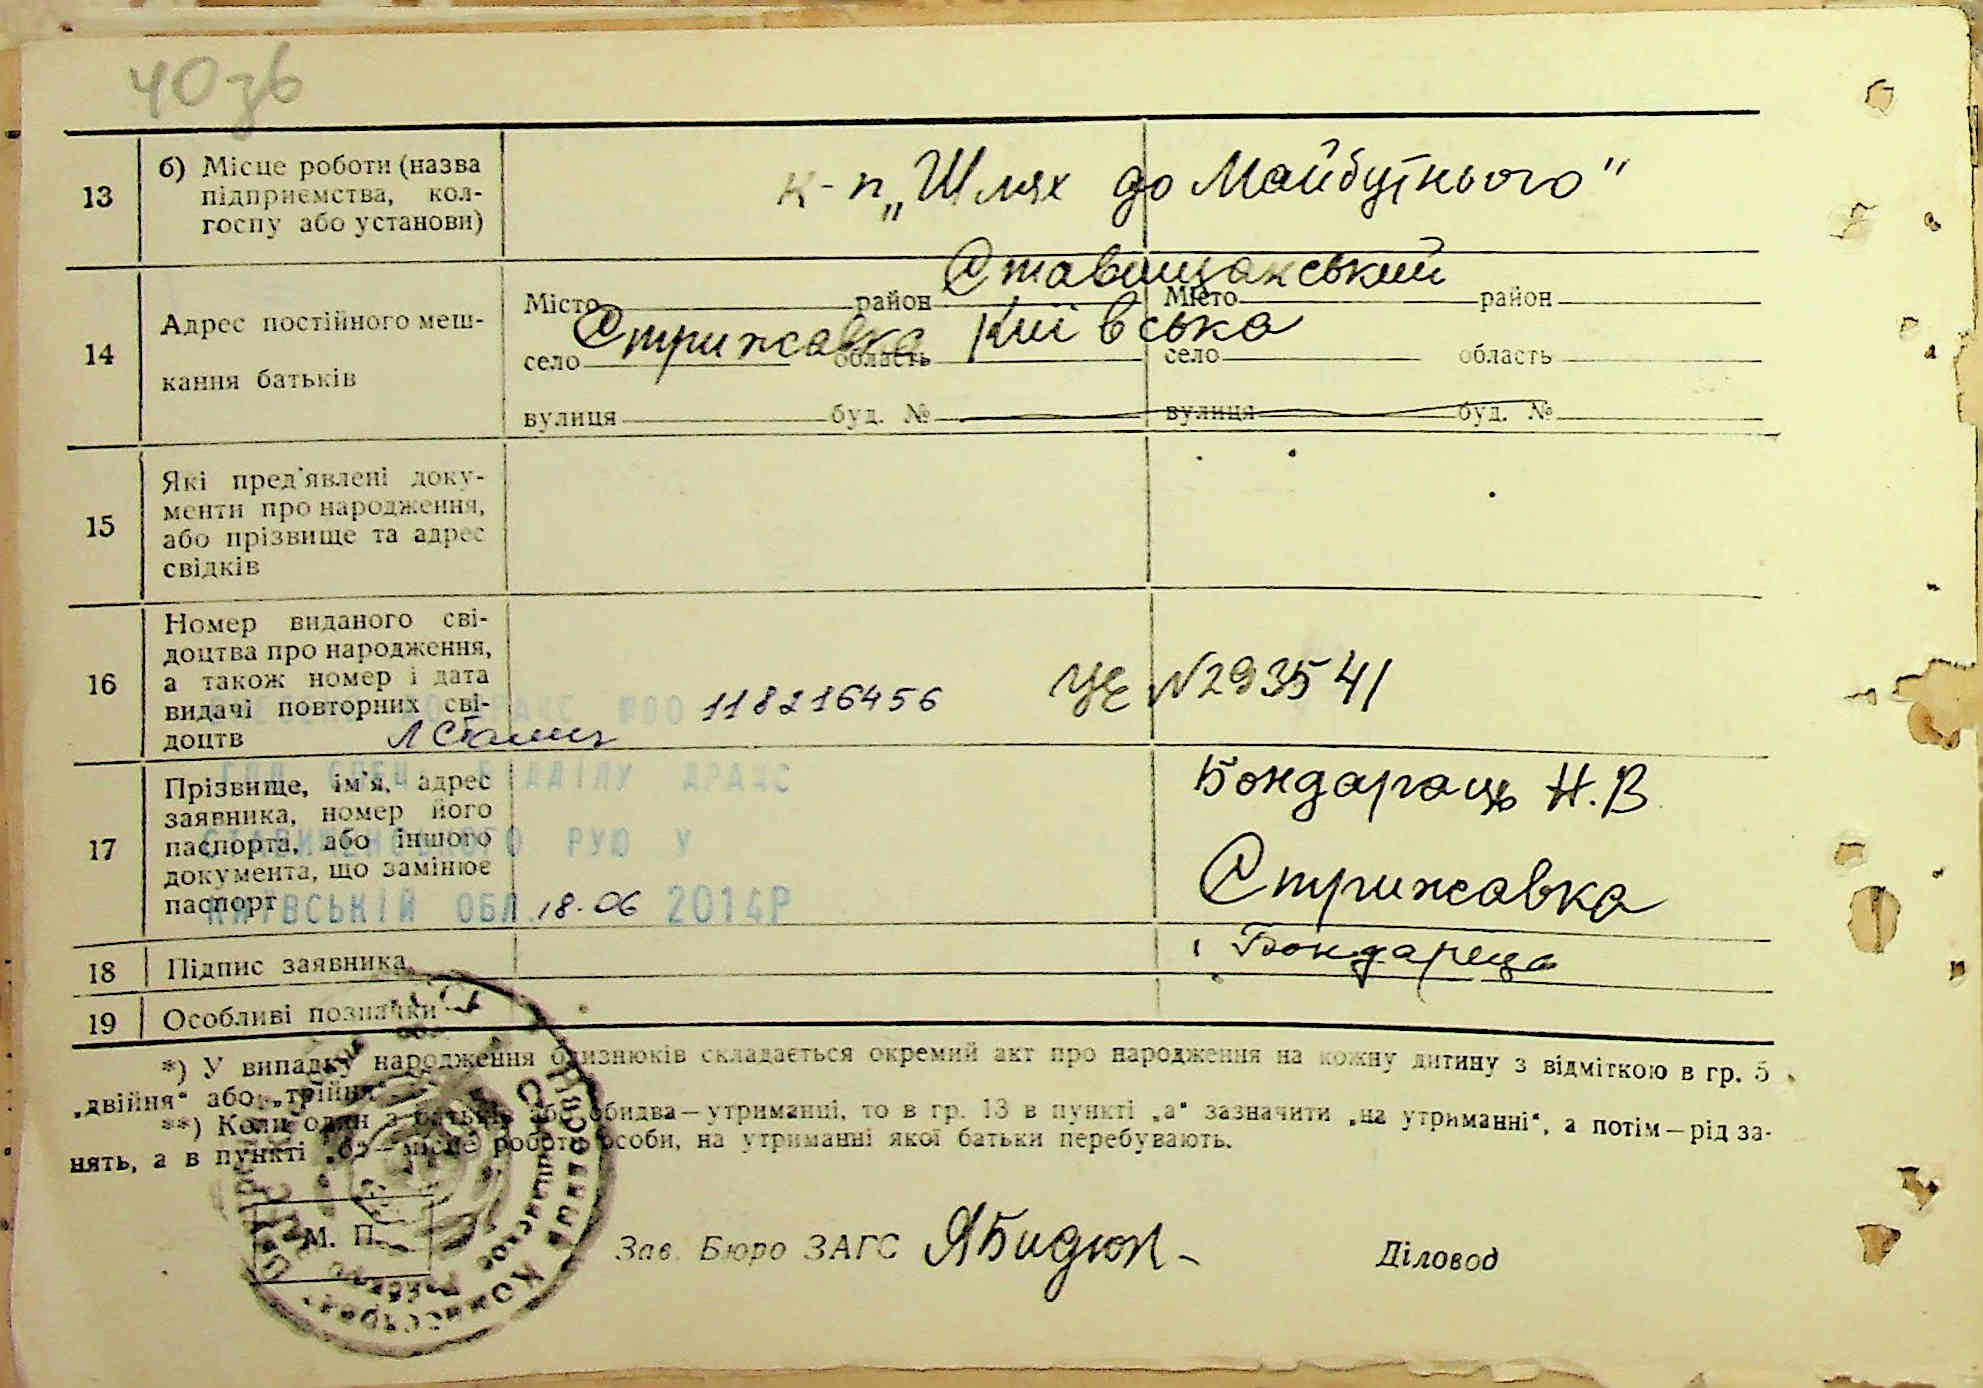 40зв
13
б) Місце роботи (назва
підприємства, кол-
госпу або установи)
к-п „Шлях до Майбутнього"
14
Адрес постійного меш-
кання батьків
Місто район Ставищанський Місто район
село Стрижавка область Київська село область
вулиця буд. № вулиця буд. №
15
Які пред'явлені доку-
менти про народження,
або прізвище та адрес
свідків
16
Номер виданого сві-
доцтва про народження,
а також номер і дата
видачі повторних сві-
доцтв
118216456
ЦЕ N293541
17
Прізвище, ім'я, адрес
заявника, номер його
паспорта, або іншого
документа, що замінює
паспорт
ВІДДІЛУ ДРАЦС
СТАВИЩЕНСЬКОГО РУЮ У
КИЇВСЬКІЙ ОБЛ. 18.06 2014Р
Н.В
Стрижавка
18
Підпис заявника
19
Особливі позначки
*) У випадку народження близнюків складається окремий акт про народження на кожну дитину з відміткою в гр. 5
„двійня“ або „трійня“
**) Коли один з батьків або обидва—утриманці, то в гр. 13 в пункті „а“ зазначити „на утриманні“, а потім—рід за-
нять, а в пункті „б“—місце роботи особи, на утриманні якої батьки перебувають.
М. П.
Зав. Бюро ЗАГС
Діловод